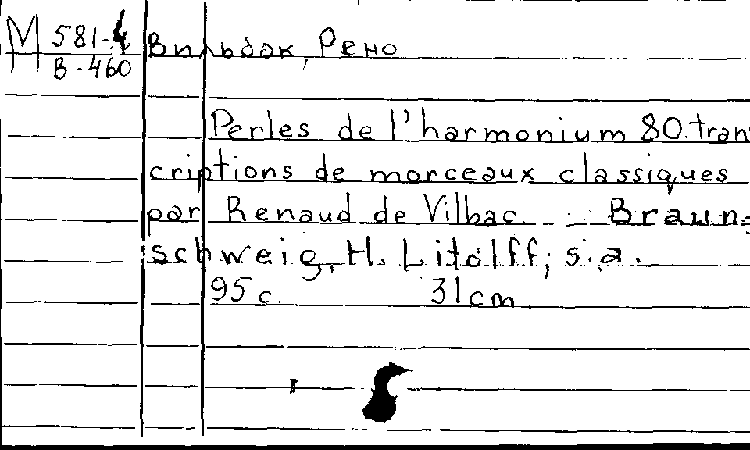 М 581-4 Вильбак, Рено
В-460
Perles de l'harmonium 80 tran
criptions de morceaux classiques
par Renaud de Vilbac. Braun=
schweig, H. Litolff, s.a.
95 c 31 cm